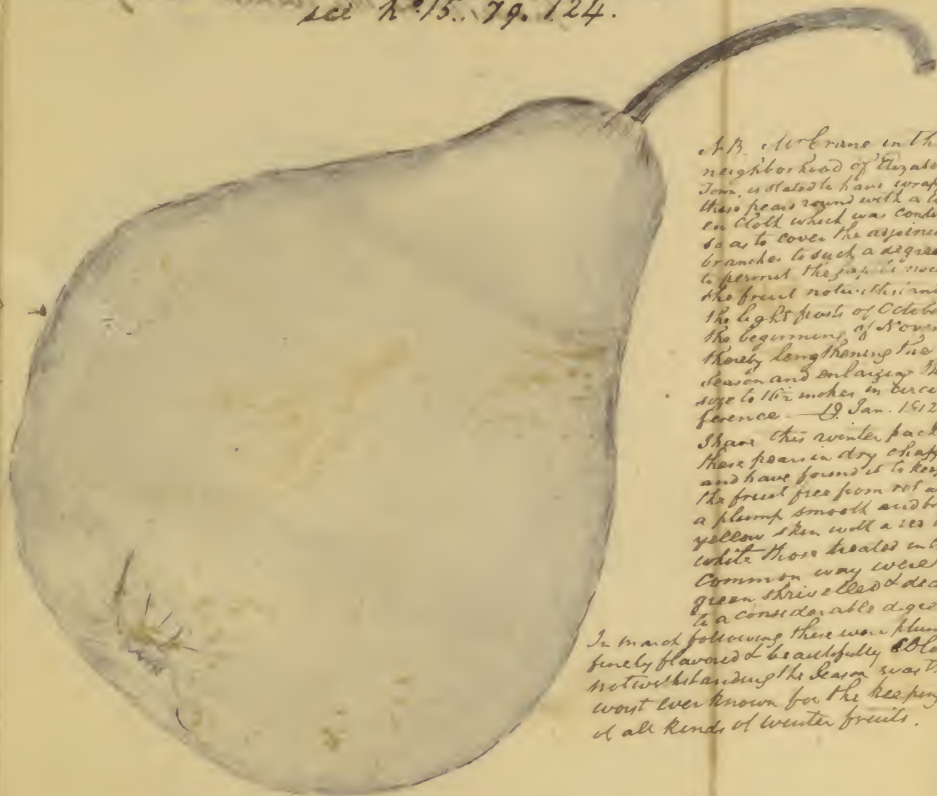 see No. 15. pg. 124.
N.B. Mr Crane in th
neighborhood of Elizab
Town, is stated to have wrap
these pears round with a
en cloth which was
so as to cover the adjoini
branches to such a degree
to permit the sap to nou
the fruit notwithstand
the light frosts of Octobe
the beginning of Novem
thereby lengthening the
season and enlarging th
size to 16½ inches in circu
ference — 19 Jan. 1812
I have this winter pack
these pears in dry chaff
and have found it to kee
the fruit free from rot a
a plump smooth and br
yellow skin with a red
while those treated in
common way were
green shrivelled & dec
to a considerable degre
In march following these were plum
finely flavored & beautifully colo
notwithstanding the season was th
worst ever known for the keeping
of all kinds of winter fruits.